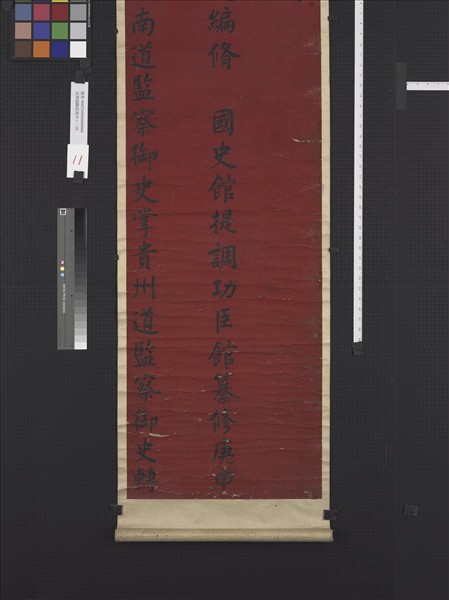 編脩 國史館提調功臣館纂修庚申
南道監察御史掌貴州道監察御史轉
11